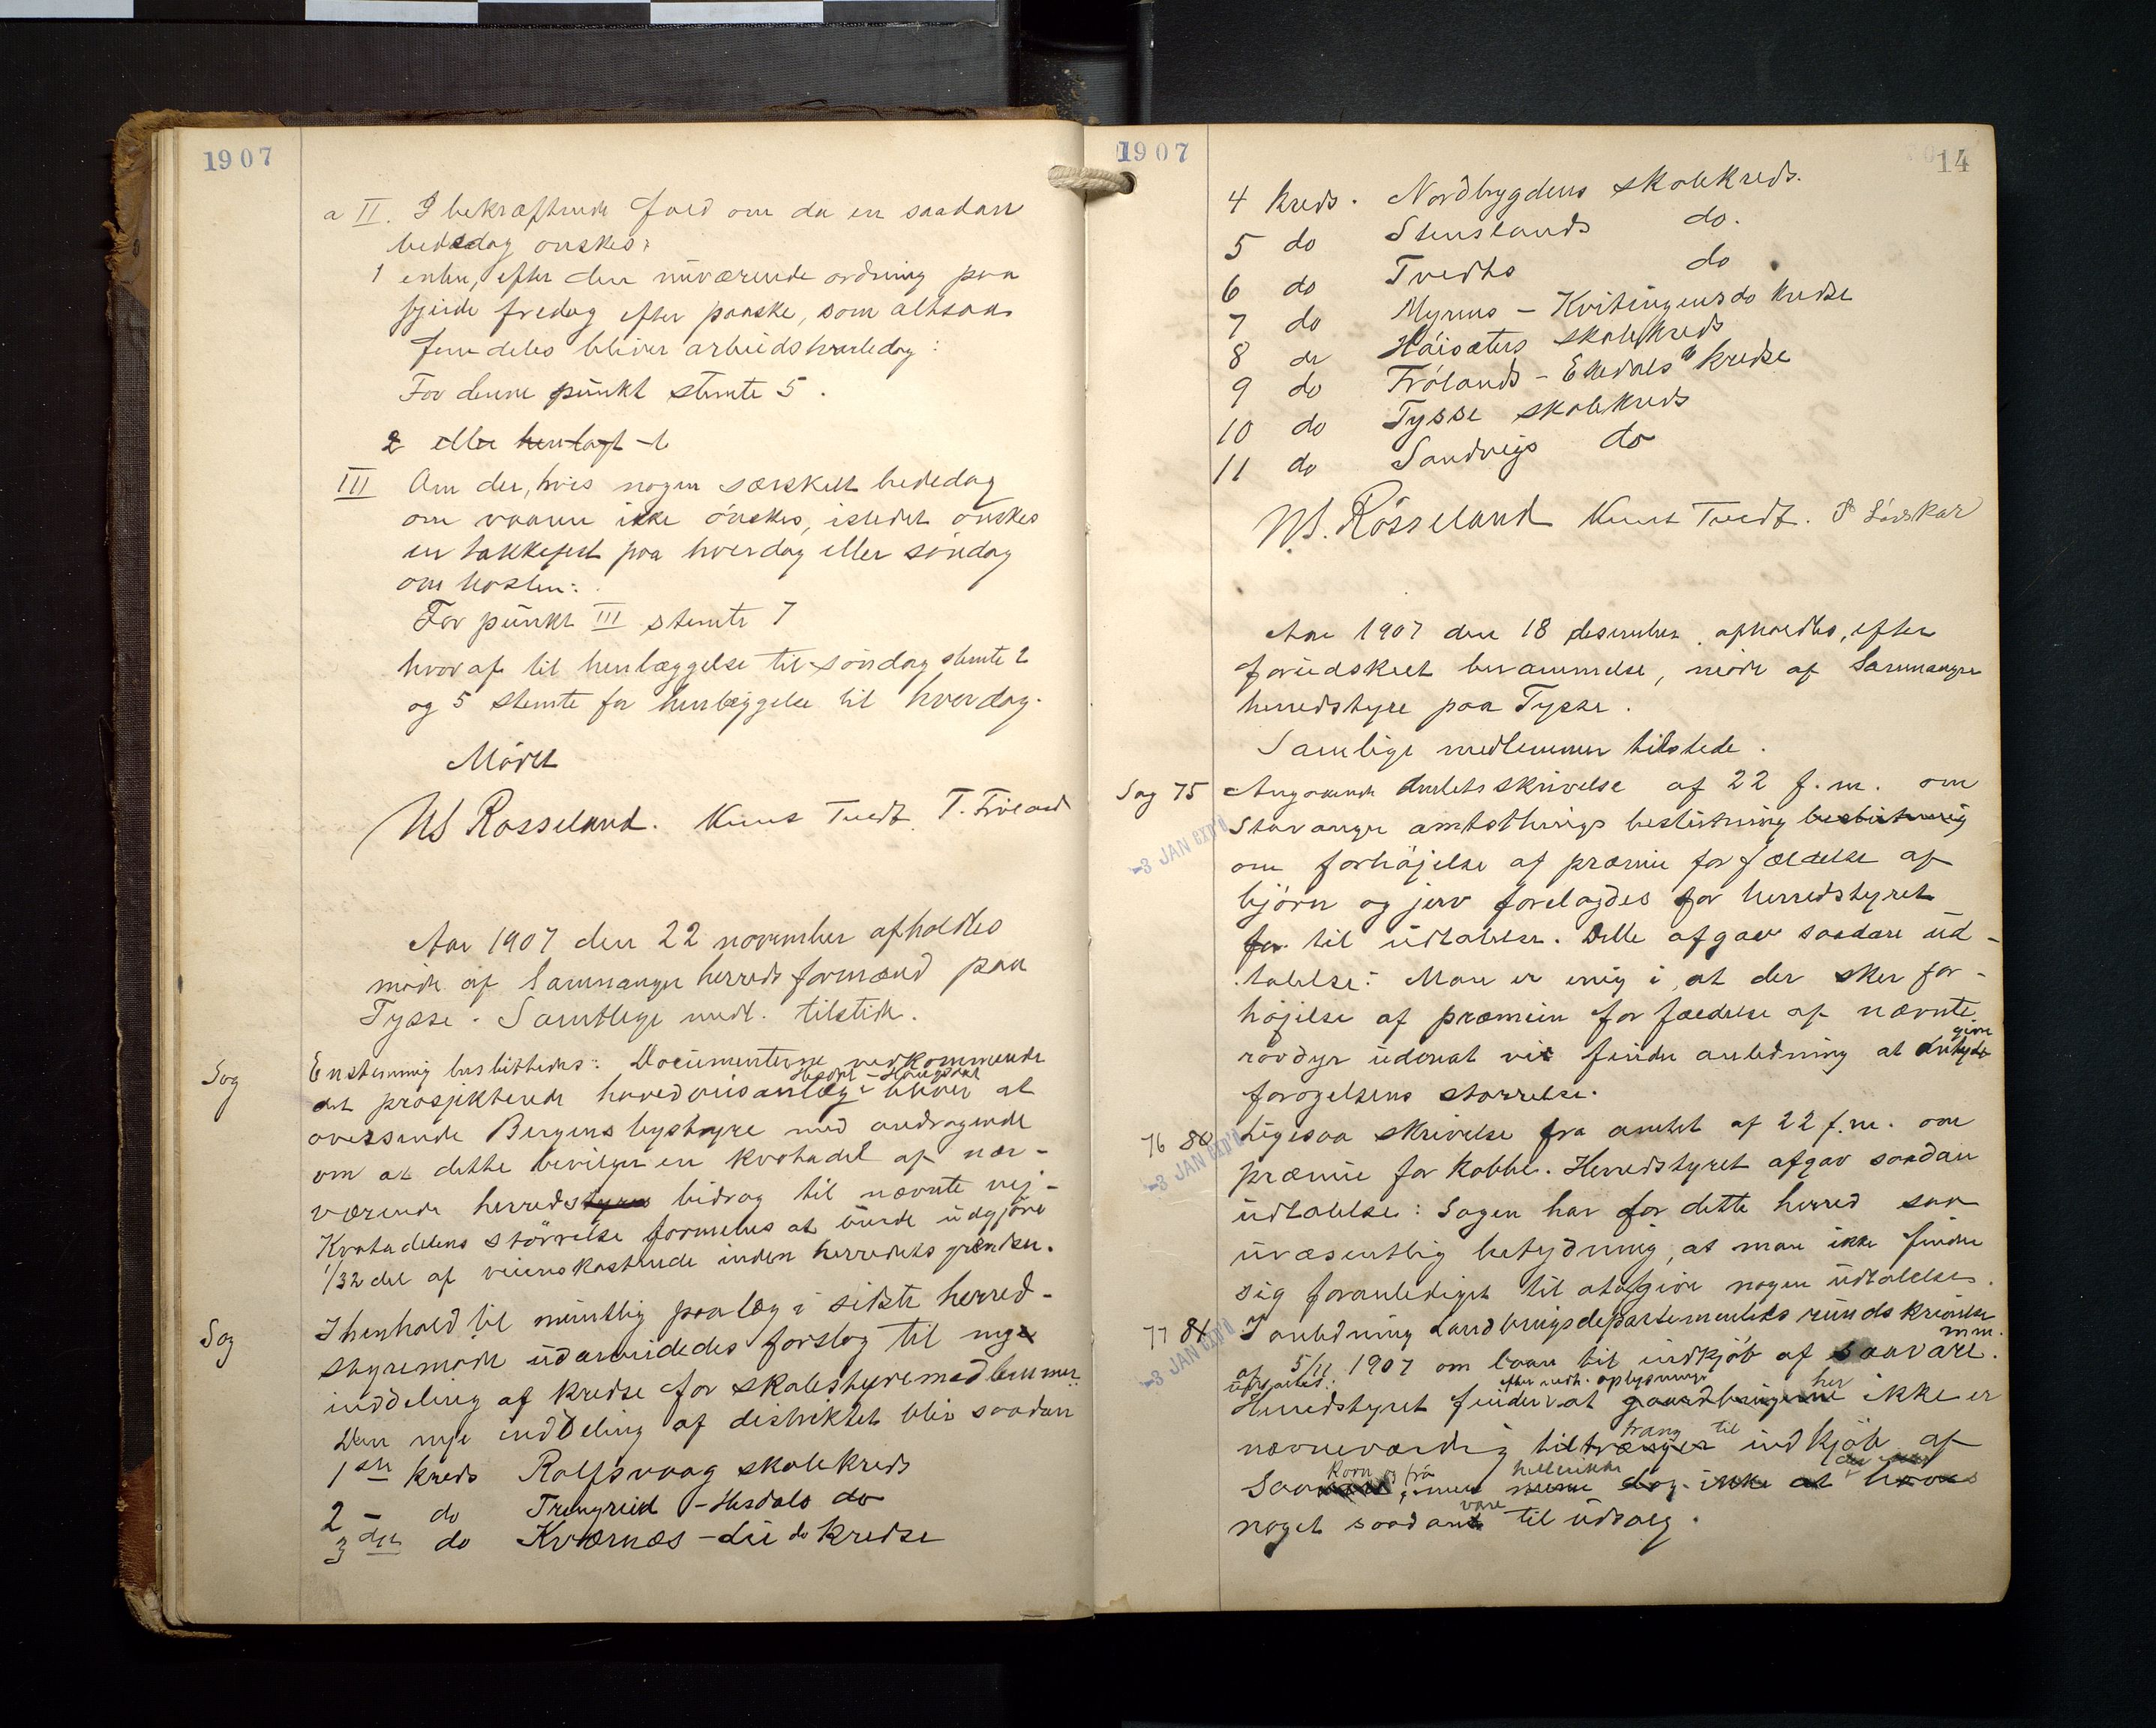 1907
a II. I bekræftende fald om da en saadan
bededag ønskes:
1 enten, efter den nuværende ordning paa
fjerde fredag efter paaske, som altsaa
fremdeles bliver arbeidshviledag:
For denne punkt stemte 5.
2 eller henlagt t
III Om der, hvis nogen særskilt bededag
om vaaren ikke ønskes, istedet ønskes
en takkefest paa hverdag eller søndag
om høsten:
For punkt III stemte 7
hvoraf til henlæggelse til søndag stemte 2
og 5 stemte for henlæggelse til hverdag.
Mødet
NS Rosseland. Knut Tvedt. T. Frøland
Aar 1907 den 22 november afholdtes
møde af Samnanger herreds formænd paa
Tysse. Samtlige medl. tilstede.
Sag Enstemmig besluttedes: Documenterne vedkommende
det prosjekterede hovedveisanlæg Hisdal - Haugsdal bliver at
oversende Bergens bystyre med andragende
om at dette bevilger en kvotadel af nær-
værende herredstyres bidrag til nævnte vej-
Kvotadelens størrelse formenes at burde udgjøre
1/32 del af veiens kostende inden herredets grænser.
Sag I henhold til mundtlig paalæg i sidste herred-
styremøde udarbeidedes forslag til nye
inddeling af kredse for skolestyremedlemmer
Den nye inddeling af distriktet blir saadan
1ste kreds Rolfsvaag skolekreds
2 - do Trengereid - Hisdals do
3die do Kværnæs - Lie do kredse
1907
14
4 kreds. Nordbygdens skolekreds.
5 do Stenslands do.
6 do Tvedts do
7 do Myrens - Kvitingens do kredse
8 do Høisæters skolekreds
9 do Frølands - Eikedals " kredse
10 do Tysse skolekreds
11 do Sandvigs do
NS. Rösseland Knut Tvedt. P Lönskar
Aar 1907 den 18 desember afholdtes, efter
forudskeet berammelse, møde af Samnanger
herredstyre paa Tysse.
Samlige medlemmer tilstede.
Sag 75 Angaaende Amtets skrivelse af 22 f.m. om
Stavanger amtsthings beslutning beslutning
-3 JAN
om forhøjelse af præmie for fældelse af
bjørn og jerv forelagdes for herredstyret
for til udtalelse. Dette afgav saadan ud-
talelse: Man er enig i, at der sker for-
højelse af præmien for fældelse af nævnte
rovdyr uden at vi finder anledning at antyde give
forøgelsens størrelse.
76 80 Ligesaa skrivelse fra amtet af 22 f.m. om
-3 JAN
præmie for kobbe. Herredstyret afgav saadan
udtalelse: Sagen har for dette herred saa
uvæsentlig betydning, at man ikke finder
sig foranlediget til at afgive nogen udtalelse.
77 81 I anledning Landbrugsdepartementets rundskrivelse
-3 JAN
af 5/11 1907 om laan til indkjøb af saavare mm.
Herredstyret finder efter indh. oplysninger at gaardbrugerne her ikke er
nævneværdig tiltrænger trang til indkjøb af
Saa korn og frø, men dog ikke at have
noget saadant vare til udsalg.